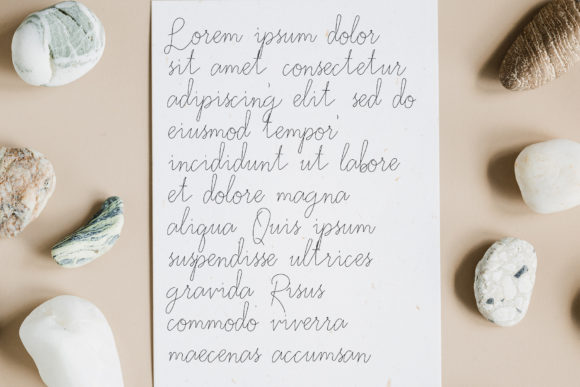 Lorem ipsum dolor
sit amet consectetur
adipiscing elit sed do
eiusmod tempor
incididunt ut labore
et dolore magna
aliqua Quis ipsum
suspendisse ultrices
gravida Risus
commodo viverra
maecenas accumsan